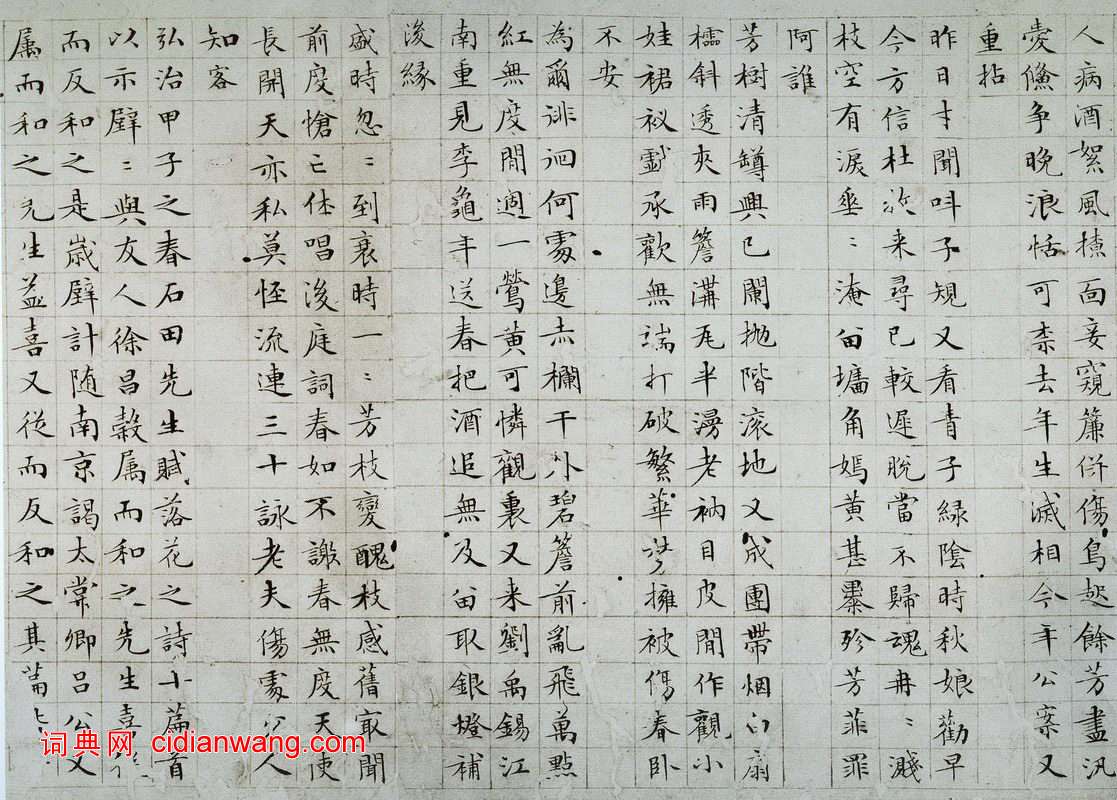 人病酒絮風攙面妾窺簾併傷鳥起餘芳盡汎
愛儵争晚浪恬可柰去年生滅相今年公案又
重拈
昨日才聞叫子規又看青子綠陰時秋娘勸早
今方信杜牧来尋已較遲脫當不歸魂冉冉濺
枝空有淚垂垂淹留墻角嫣黄甚纍殄芳菲罪
阿誰
芳樹清罇興已闌抛階滚地又成團帶烟白扇
櫺斜透夾雨簷溝瓦半漫老衲目皮閒作觀小
娃裙衱戲承歡無端打破繁華夢擁被傷春卧
不安
為爾徘徊何處邊赤欄干外碧簷前亂飛萬點
紅無度閒過一鶯黄可憐觀裏又来劉禹錫江
南重見李龜年送春把酒追無及留取銀燈補
後緣
盛時忽忽到衰時一一芳枝變醜枝感舊最聞
前度愴亡休唱後庭詞春如不謝春無度天使
長開天亦私莫怪流連三十詠老夫傷處少人
知客
弘治甲子之春石田先生賦落花之詩十篇首
以示璧璧與友人徐昌穀属而和之先生喜從
而反和之是歲璧計随南京謁太常卿吕公又
属而和之先生益喜又從而反和之其篇
词典网 cidianwang.com